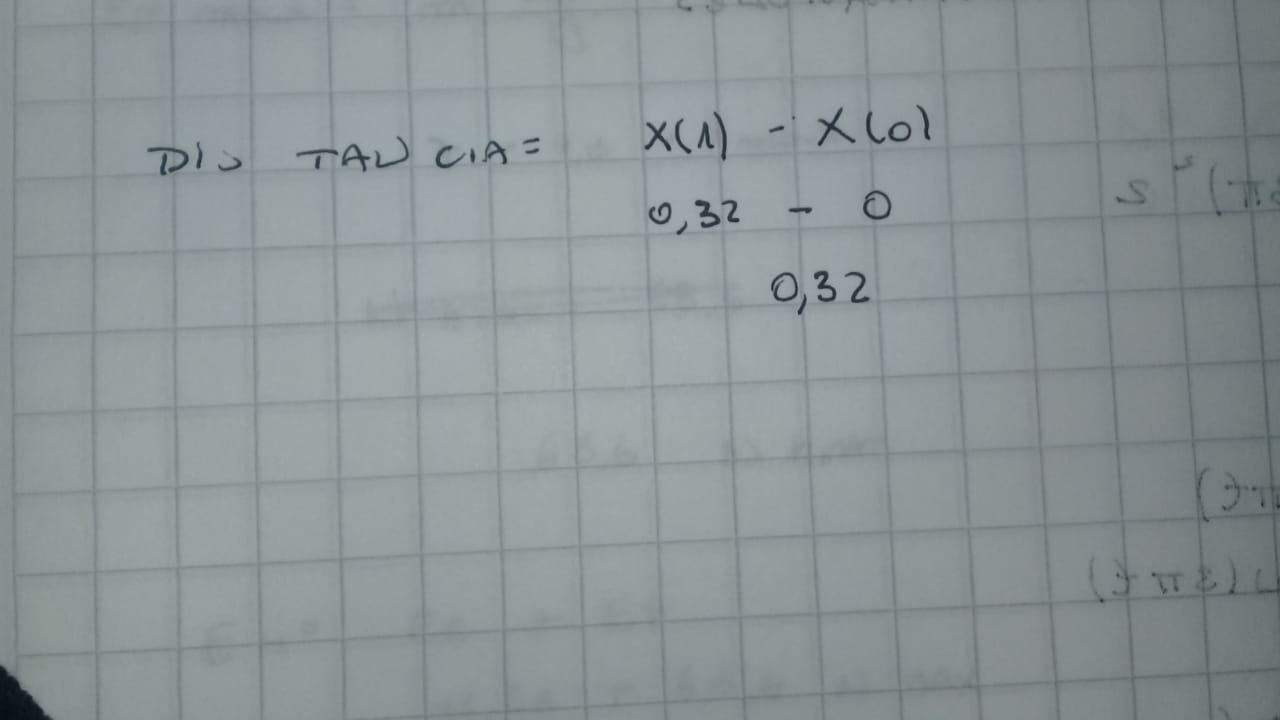 DIS TAN CIA = X(1) - X(0)
0,32 - 0
0,32